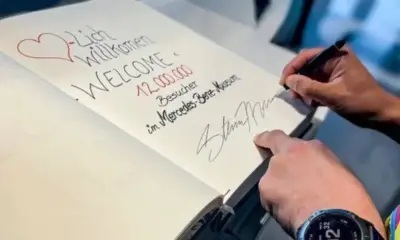 -Lich
Willkommen
"WELCOME"
12.000.000
Besucher
im Mercedes-Benz Museum